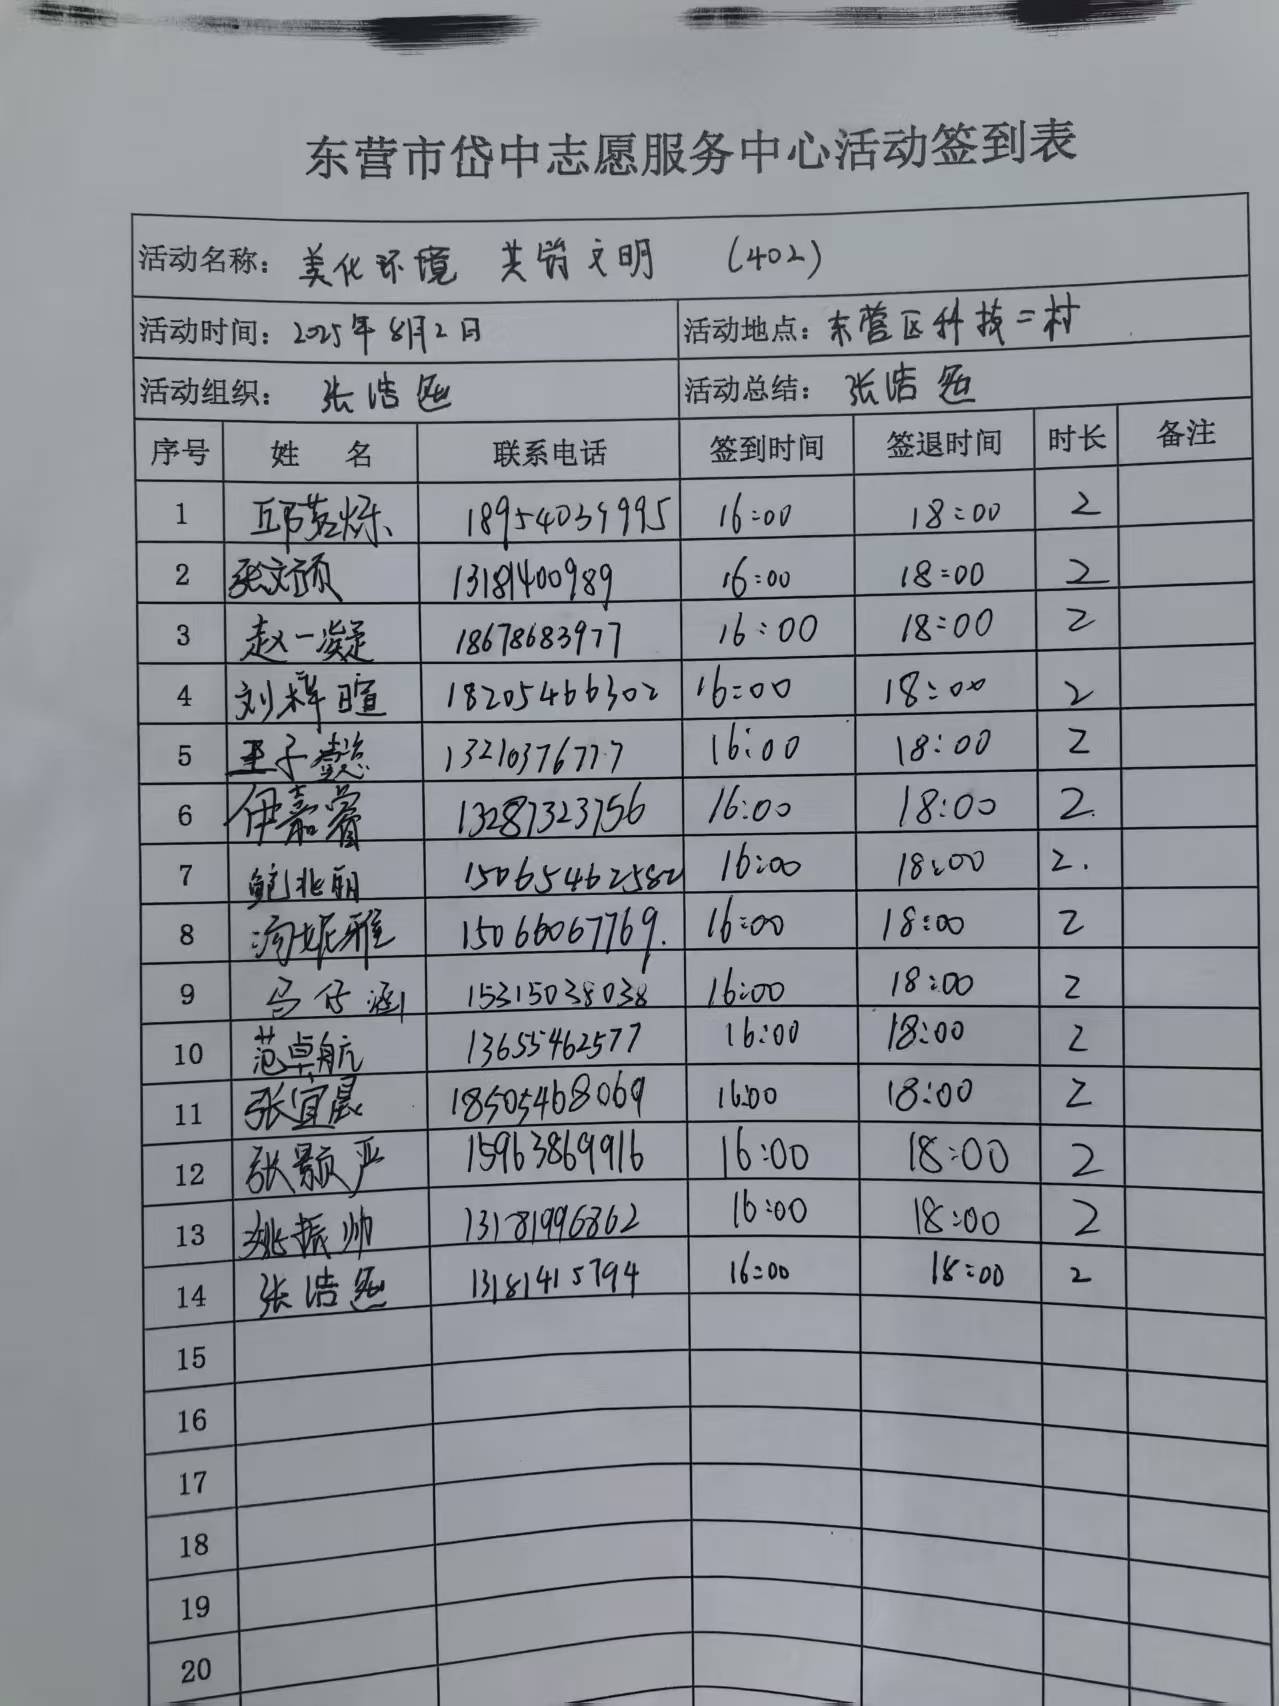 东营市岱中志愿服务中心活动签到表
活动名称: 美化环境 共筑文明 (402)
活动时间: 2025年8月2日 活动地点: 东营区科技二村
活动组织: 张浩 活动总结: 张浩
序号 姓 名 联系电话 签到时间 签退时间 时长 备注
1 18954039995 16:00 18:00 2
2 13181400989 16:00 18:00 2
3 赵一凝 18678683977 16:00 18:00 2
4 刘梓暄 18205466302 16:00 18:00 2
5 王子懿 13210376777 16:00 18:00 2
6 伊嘉睿 13287323756 16:00 18:00 2.
7 鲍兆朋 15065462582 16:00 18:00 2.
8 汤妮雅 15066067769. 16:00 18:00 2
9 马仔涵 15315038038 16:00 18:00 2
10 范卓航 13655462577 16:00 18:00 2
11 张宜晨 18505468069 16:00 18:00 2
12 张颢严 15963869916 16:00 18:00 2
13 姚振帅 13181996362 16:00 18:00 2
14 张浩 13181415794 16:00 18:00 2
15
16
17
18
19
20